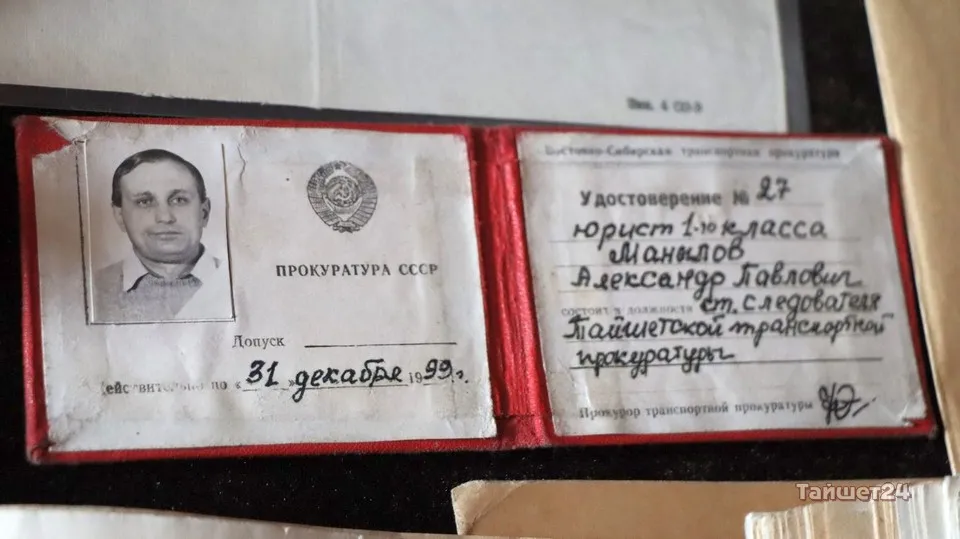 ПРОКУРАТУРА СССР
Допуск
Действительно по «31» декабря 1999 г.
Восточно-Сибирская транспортная прокуратура
Удостоверение № 27
юрист 1-го класса
Манылов
Александр Павлович
состоит в должности ст. следователя
Тайшетской транспортной
прокуратуры
Прокурор транспортной прокуратуры
Тайшет24